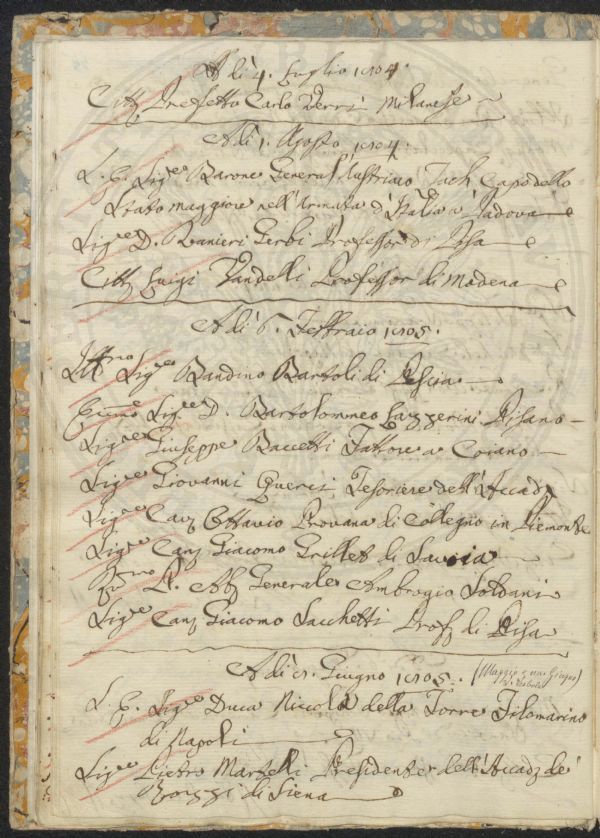 A dì 4. Luglio 1804.
Citt. Prefetto Carlo Verri Milanese
A dì 1. Agosto 1804
S. E. Sig.re Barone General Austriaco Zach Capo dello
Stato maggiore nell'Armata d'Italia a Padova
Sig.re D. Ranieri Gerbi Professor di Pisa
Citt. Luigi Vandelli Professor di Modena
A dì 6. Febbraio 1805.
Ill.mo Sig.re Bandino Bartoli di Pescia
Sig.re D. Bartolommeo Lazzerini Pisano
Sig.re Giuseppe Baccetti Fattore a Coiano
Sig.re Giovanni Querci Tesoriere dell'Accad.
Sig.re Cav. Ottavio Provana di Collegno in Piemonte
Sig.re Cav. Giacomo Grillet di Savoia
P. Ab. Generale Ambrogio Soldani
Sig.re Cav. Giacomo Sacchetti Prof. di Pisa
A dì Giugno 1805. (Maggio
S. E. Sig.re Duca Niccola della Torre Filomarino
di Napoli
Sig.re Pietro Martelli Presidente dell'Accad. de'
Rozzi di Siena